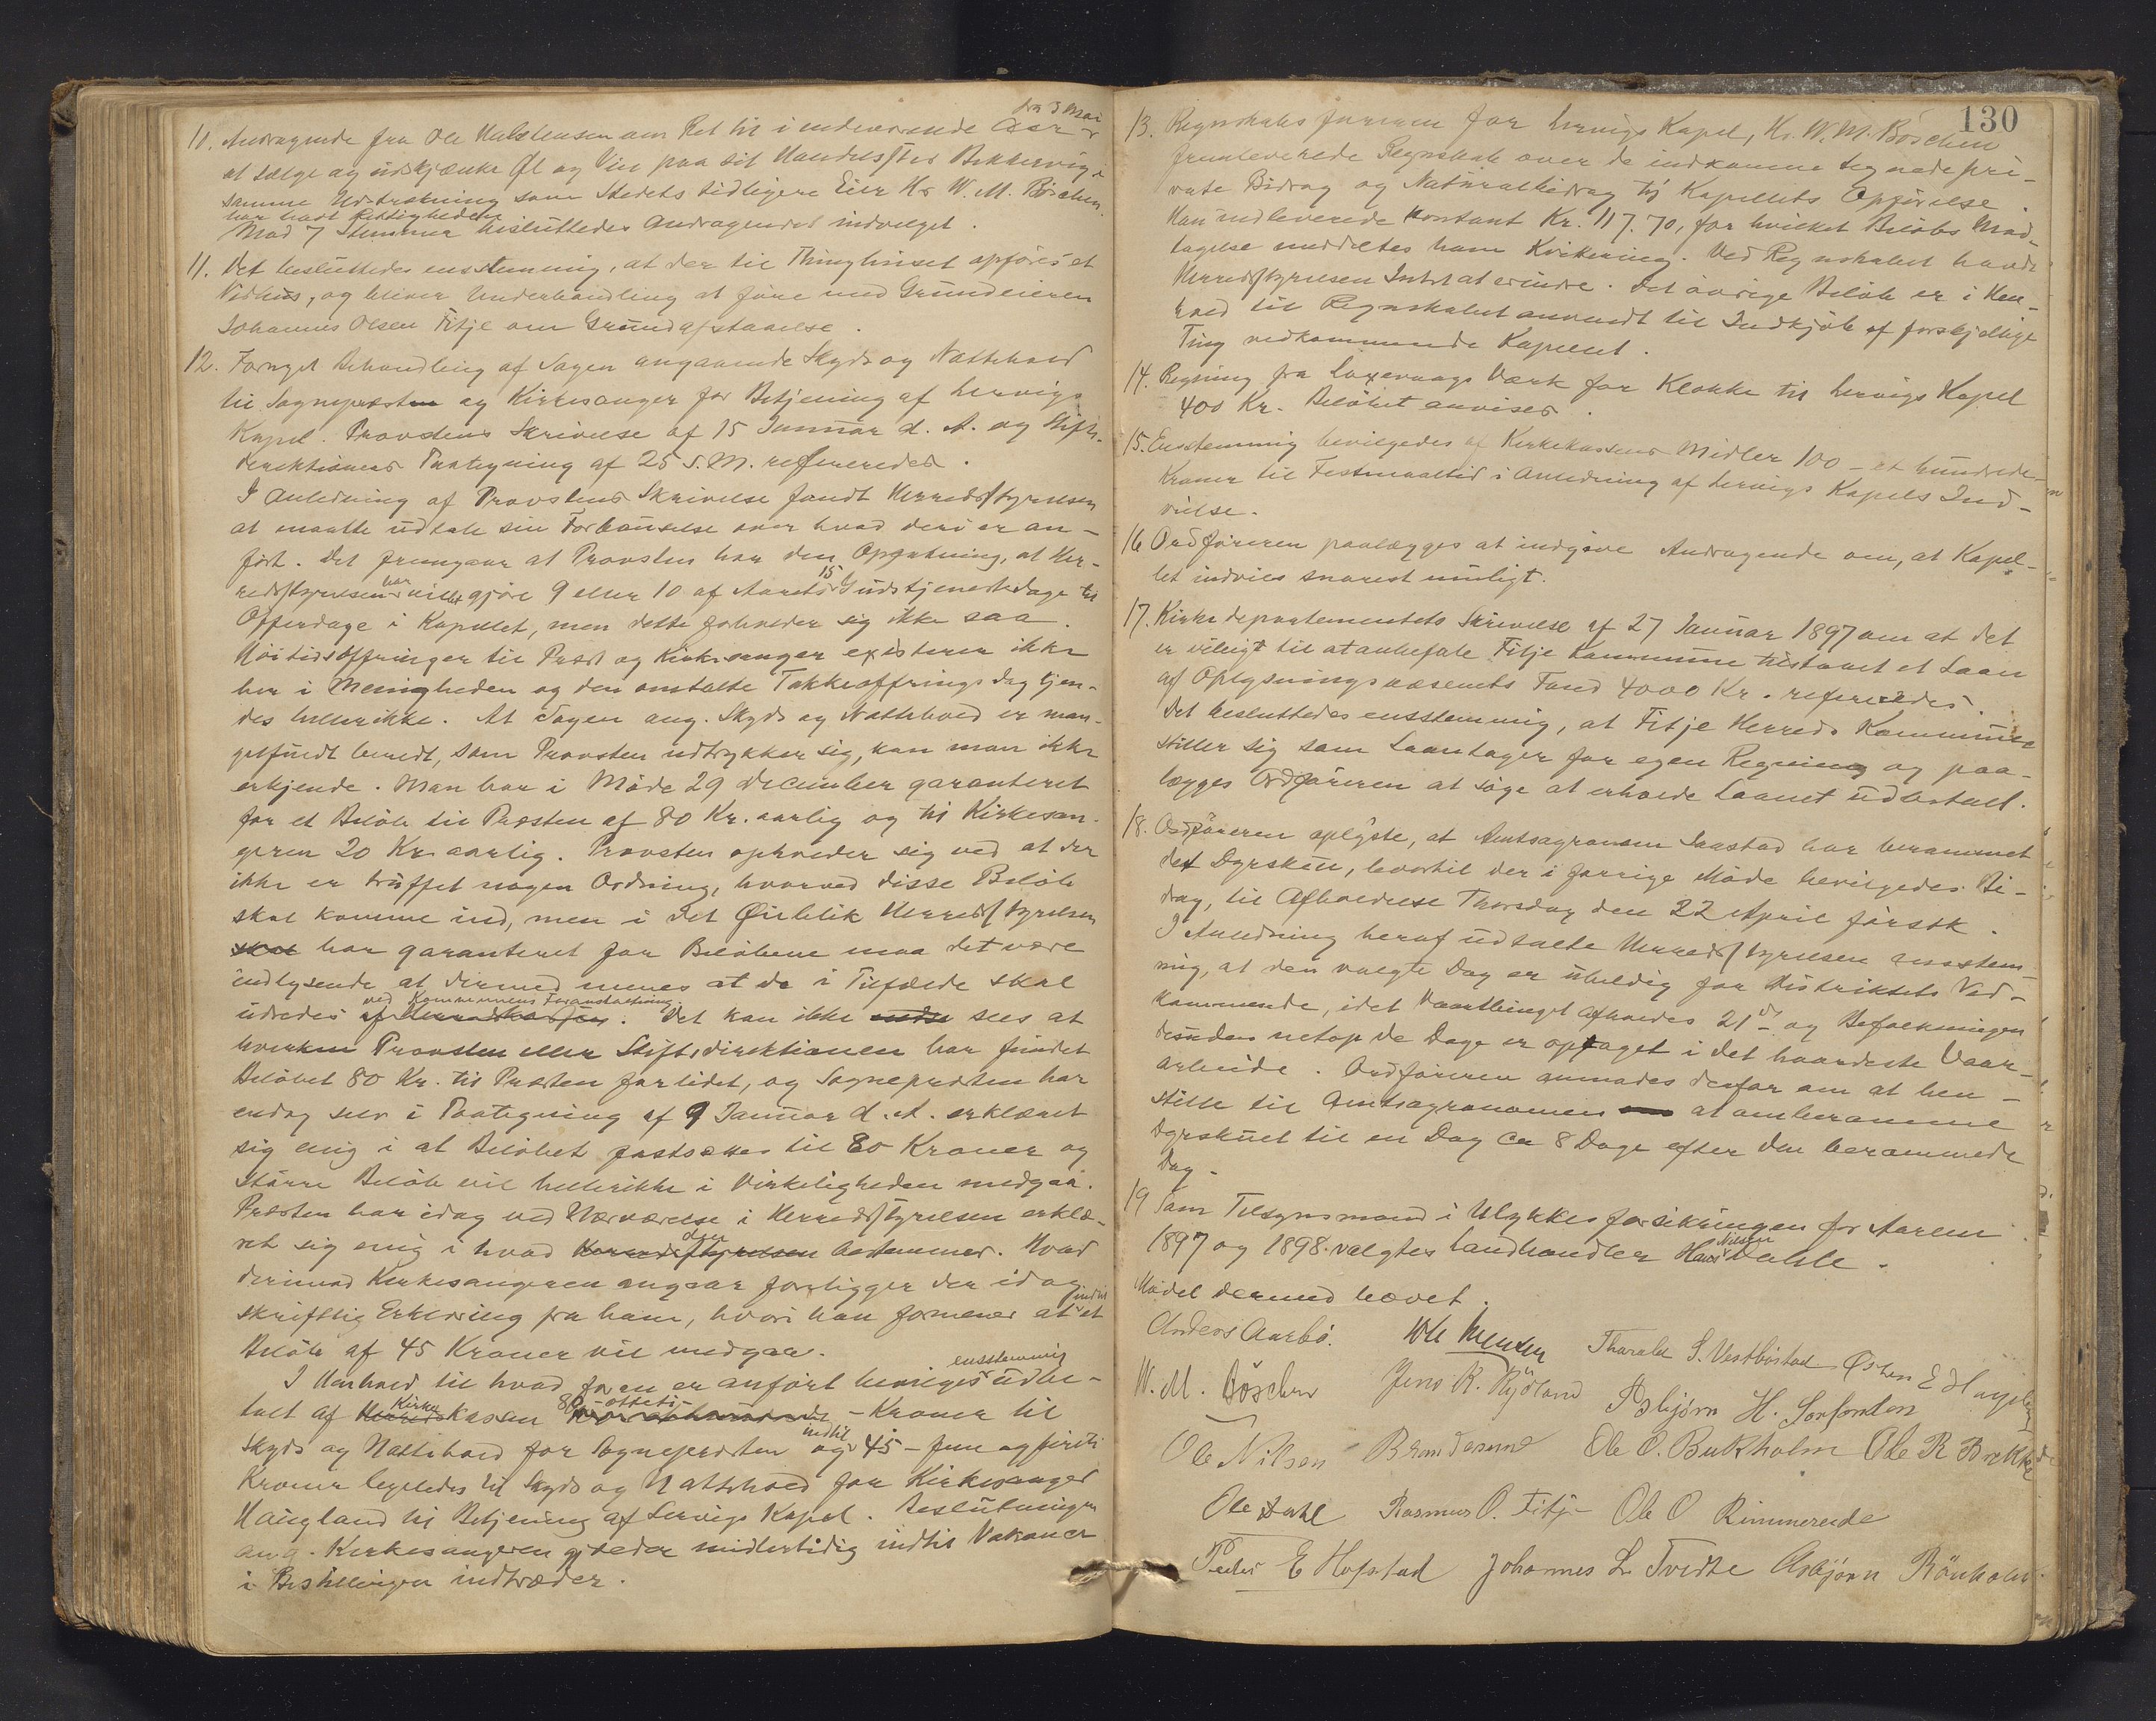 fra 3 Mai
10. Andragende fra Ole Halstensen om Ret til i indeværende Aar
at sælge og udskjænke Øl og Vin paa sit Handelssted Bekkervig i
samme Udstrækning som Stedets tidligere Eier Hr W. M. Böschen
har havt Rettigheden.
Mod 7 Stemmer besluttedes Andragendet indvilget.
11. Det besluttedes enstemmig, at der til Thinghuset opføres et
Vedhus, og bliver Underhandling at føre med Grundeieren
Johannes Olsen Fitje om Grundafstaaelse.
12. Fornyet Behandling af Sagen angaaende Skyds og Nattehold
til Sognepræsten og Kirkesanger for Betjening af Lervigs
Kapel. Provstens Skrivelse af 15 Januar d. A. og Stifts-
direktionens Paategning af 25 s. M. refereredes.
I Anledning af Provstens Skrivelse fandt Herredsstyrelsen
at maatte udtale sin Forbauselse over hvad deri er an-
ført. Det fremgaar at Provsten har den Opfatning, at Her-
redsstyrelsen har villet gjøre 9 eller 10 af Aarets 15 Gudstjenestedage til
Offerdage i Kapellet, men dette forholder sig ikke saa.
Höitidsoffringer til Præst og Kirkesanger existerer ikke
her i Menigheden og den omtalte Takkeoffrings dag tjen-
des hellerikke. At Sagen ang. Skyds og Nattehold er man-
gelfuldt beredt, som Provsten udtrykker sig, kan man ikke
erkjende. Man har i Møde 29 December garanteret
for et Beløb til Præsten af 80 Kr. aarlig og til Kirkesan-
geren 20 Kr. aarlig. Provsten opholder sig ved at der
ikke er truffet nogen Ordning, hvorved disse Beløb
skal komme ind, men i det Øieblik Herredsstyrelsen
skal har garanteret for Beløbene maa det være
indlysende at dermed menes at de i Tilfælde skal
ved Kommunens Foranstaltning
udredes af Herredskassen. Det kan ikke sees at
hverken Provsten eller Stiftsdirektionen har fundet
Beløbet 80 Kr. til Præsten for lidet, og Sognepræsten har
endog selv i Paategning af 9 Januar d. A. erklæret
sig enig i at Beløbet fastsættes til 80 Kroner og
større Beløb vil hellerikke i Virkeligheden medgaa.
Præsten har idag ved Nærværelse i Herredsstyrelsen erklæ-
ret sig enig i hvad Herredsstyrelsen den bestemmer. Hvad
derimod Kirkesangeren angaar foreligger der idag
skriftlig Erklæring fra ham, hvori han formener at indtil et
Beløb af 45 Kroner vil medgaa.
I Henhold til hvad foran er anført bevilges enstemmig udbe-
talt af Herreds Kirkekassen 80 - otteti - Kroner til
Skyds og Nattehold for Sognepræsten og indtil 45 - fem og firti
Kroner ligeledes til Skyds og Nattehold for Kirkesanger
Haugland til Betjening af Lervigs Kapel. Beslutningen
ang. Kirkesangeren gjælder midlertidig indtil Vakance
i Bestillingen indtræder.
130
13. Regnskabsføreren for Lervigs Kapel, Hr. W. M. Böschen
fremleverede Regnskab over de indkomne tegnede pri-
vate Bidrag og Naturalbidrag til Kapellets Opførelse.
Han indleverede kontant Kr. 117.70, for hvilket Beløbs Mod-
tagelse meddeltes ham Kvittering. Ved Regnskabet havde
Herredsstyrelsen Intet at erindre. Det øvrige Beløb er i Hen-
hold til Regnskabet anvendt til Indkjøb af forskjellige
Ting vedkommende Kapellet.
14. Regning fra Laxevaags Værk for Klokke til Lervigs Kapel
400 Kr. Beløbet anvises.
15. Enstemmig bevilgedes af Kirkekassens Midler 100 - et hundrede
Kroner til Festmaaltid i Anledning af Lervigs Kapels Ind-
vielse.
16 Ordføreren paalægges at indgive Andragende om, at Kapel-
let indvies snarest muligt.
17. Kirkedepartementets Skrivelse af 27 Januar 1897 om at det
er villigt til at anbefale Fitje Kommune tilstaaet et Laan
af Oplysningsvæsenets Fond 4000 Kr. refereredes.
Det besluttedes enstemmig, at Fitje Herreds Kommune
stiller sig som Laantager for egen Regning og paa-
lægges Ordføreren at søge at erholde Laanet udbetalt.
18. Ordføreren oplyste, at Amtsagronom Saastad har berammet
det Dyrskue, hvortil der i forrige Møde bevilgedes Bi-
drag, til Afholdelse Thorsdag den 22 April førstk.
I Anledning heraf udtalte Herredsstyrelsen enstem-
mig, at den valgte Dag er uheldig for Distriktets Ved-
kommende, idet Vaartinget afholdes 21de og Befolkningen
desuden netop de Dage er optaget i det haardeste Vaar-
arbeide. Ordføreren anmodes derfor om at hen-
stille til Amtsagronomen at omberamme
Dyrskuet til en Dag ca 8 Dage efter den berammede
Dag.
19 Som Tilsynsmand i Ulykkesforsikringen for Aarene
1897 og 1898 valgtes Landhandler Hans Nilsen Dahle.
Mødet dermed hævet.
Anders Aarbö. Thorald S. Vestbøstad Østen E Hageberg
W. M. Böschen Jens R. Rydland Asbjörn H.
Ole Nilsen Brandasund Ole O. Bukholm Ole R Brekke
Ole Dahl Rasmus O. Fitje Ole O Rimmereide
Peder E Hofstad Johannes L. Tvedte Asbjörn Rönholm